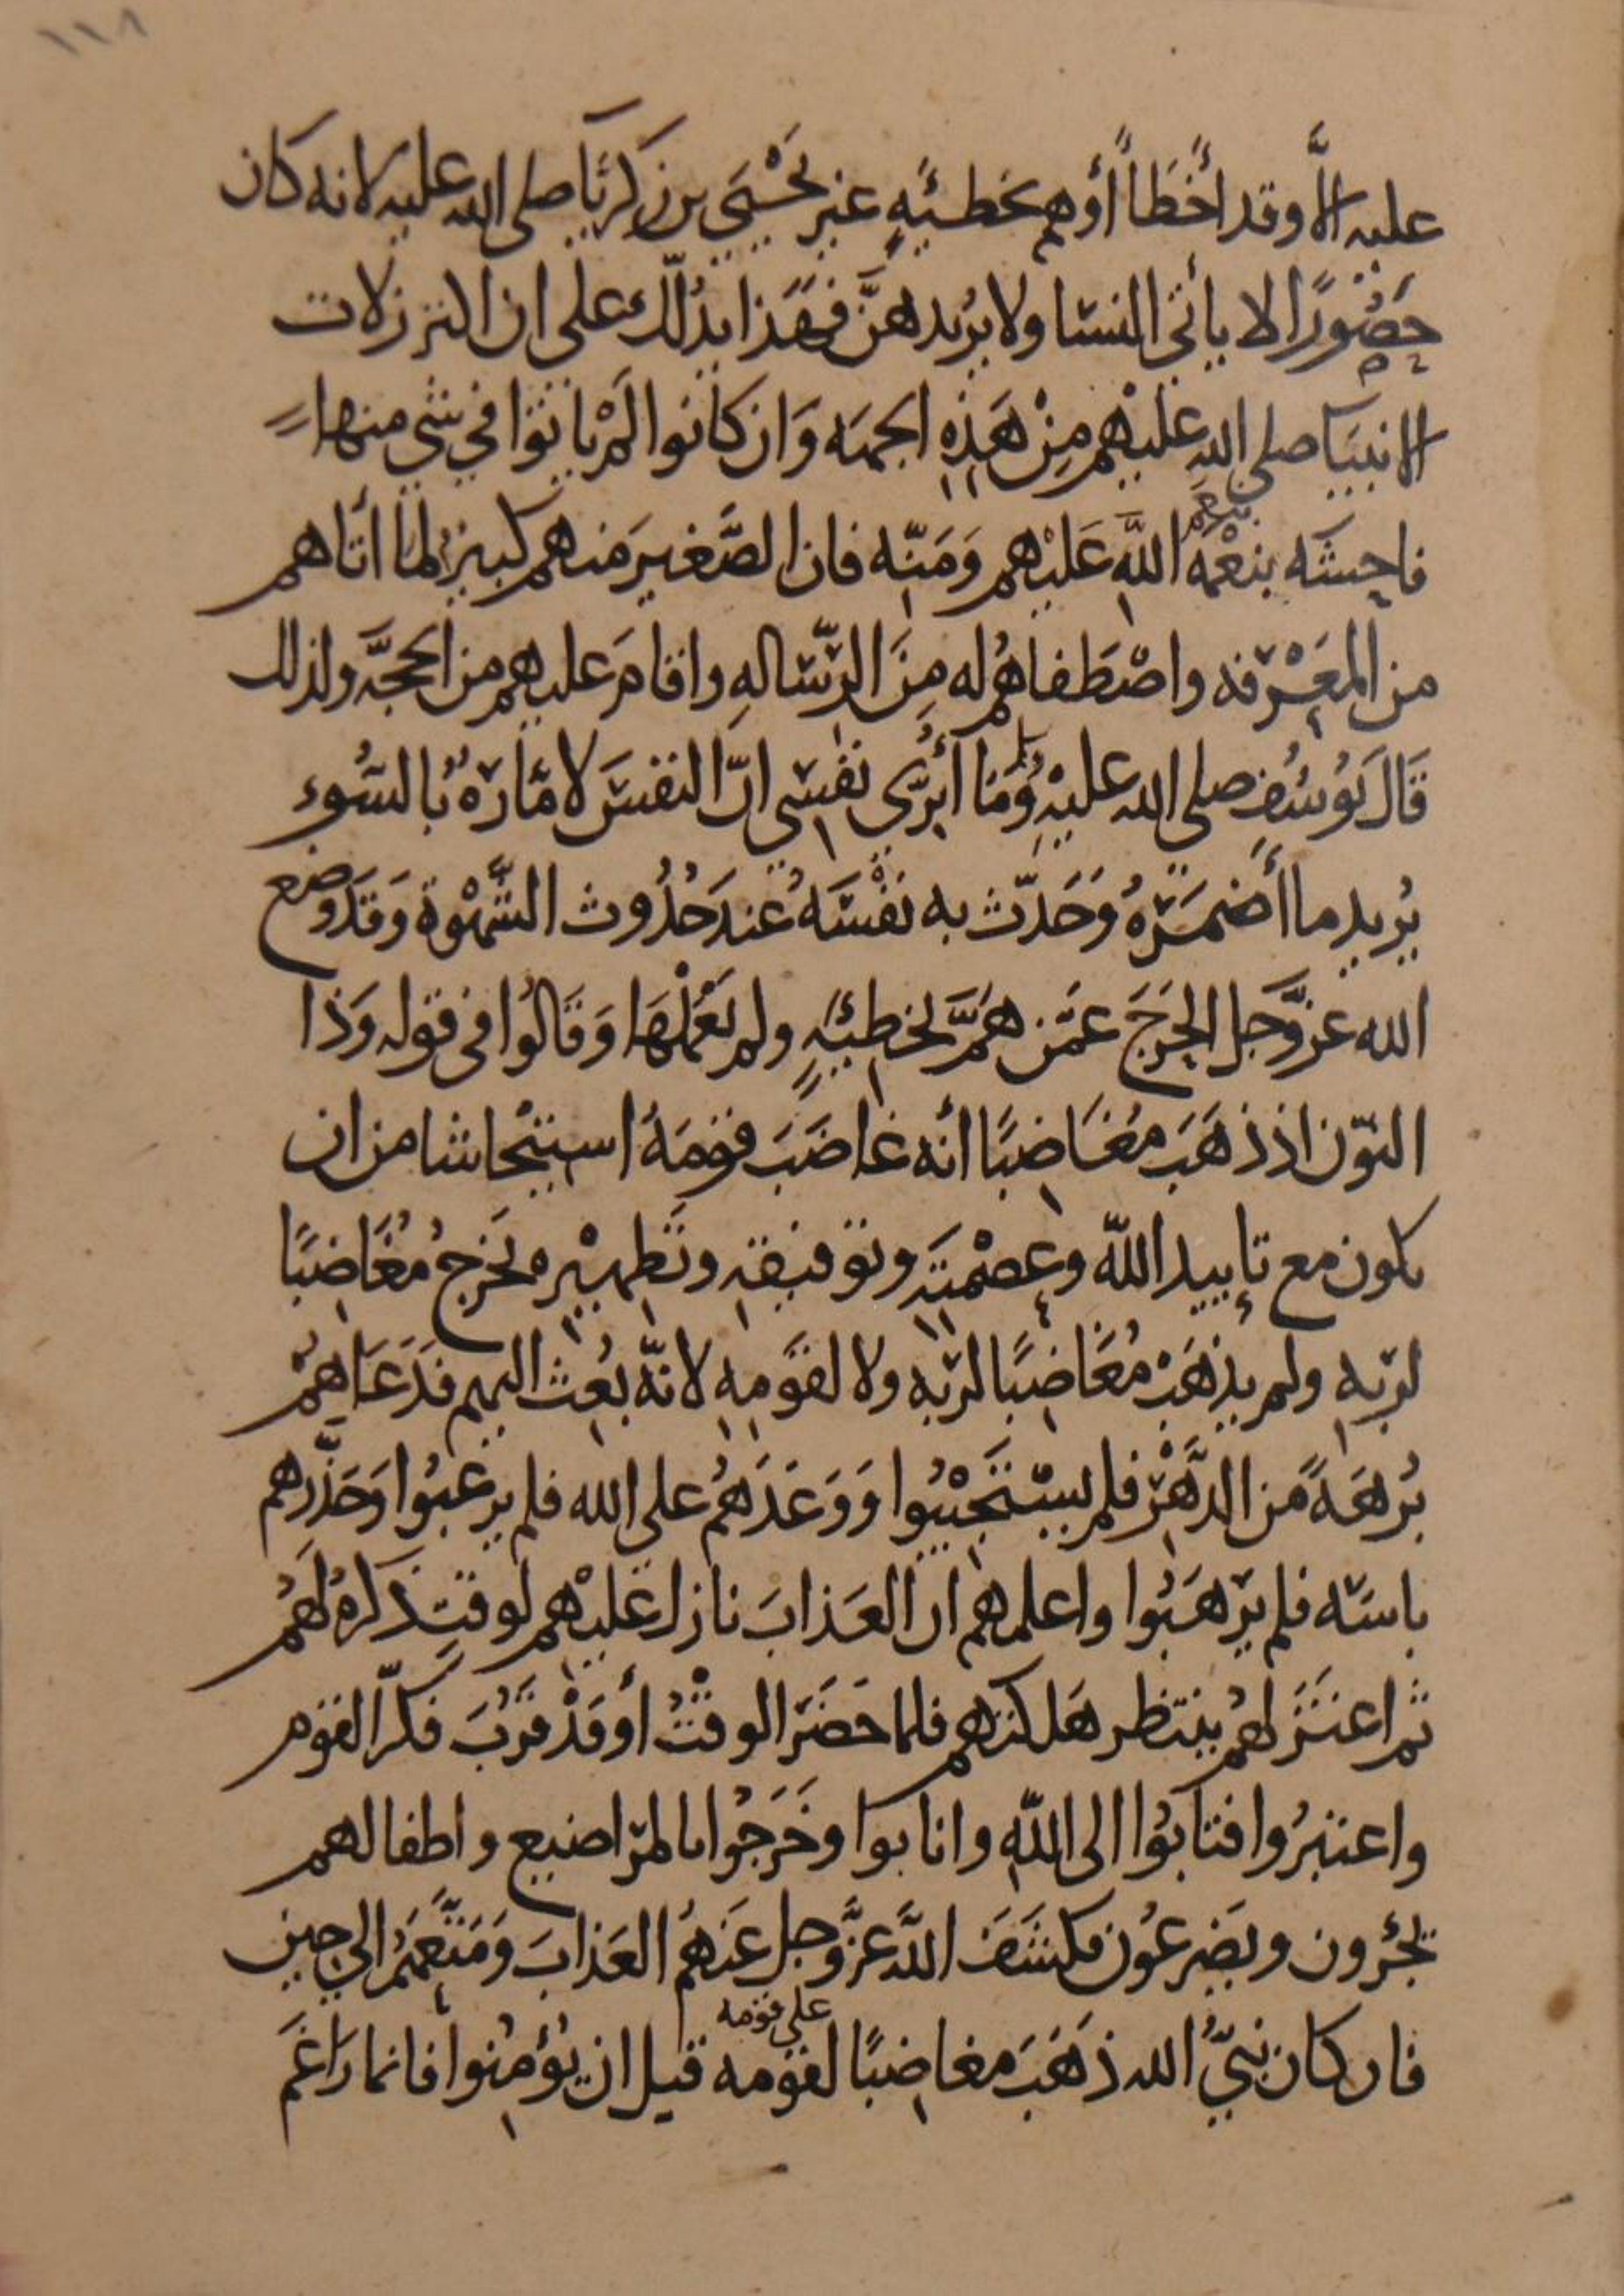 ١١٨
عليه الَّا وقد أَخْطَأً أوهم بخطيئةٍ غير يَحْيَى بن زكريّا صلى الله عليه لانه كان
حَصُورًا لا يأتى النسا ولا يُريدهنَّ فهَذا يدلّك على ان اكثر زلات
الانبيَا صلى الله عليْهم مِنْ هَذِهِ الجهه وَان كانوا لمْ ياتوا في شي منها
فاحِشَه بنِعْمَهِ اللَّهِ عَلَيْهم وَمَنّه فان الصَّغيرَ منهم كبيرٌ لما أتاهم
من المعَرْفه واصْطَفاهُم له مِنَ الرّسَالهِ واقامَ عليهم من الحجَّه ولذلك
قَالَ يُوسُف صلى الله عليْهِ وَمَا أُبَرِّي نفسِي انّ النفسَ لامّارَهٌ بالسُوء
يُريد ما أَضمَرَهُ وَحَدّث به نَفْسَهُ عندَ حُدُوث الشَّهْوَة وَقَد وضع
الله عزَّوجل الحَرَجَ عمَّن هَمَّ بخطيئهٍ ولم يَعْمَلْهَا وَقَالُوا فى قوله وَذا
النوّن اذ ذهَبَ مغَاضِبًا أنه غاضَبَ قومَهُ استيْحاشا من ان
يكون مع تأييد اللّه وعِصْمَتِهِ وتوفيقه وتَطهيْره يَخرجُ مُغَاضِبًا
لربّهِ ولم يذهَبْ مُغَاضِبًا لربّهِ ولا لقوْمِهِ لانّه بُعِث اليهم فدَعَاهُمْ
بُرهَةً من الدَّهْرِ فلم يسْتَجِيْبُوا وَوَعَدَهُم على الله فلم يرغبُوا وَحَذّرهم
باسَه فلم يَرهَبُوا واعلمهم ان العَذابَ نازل عليْهم لوقتٍ ذكرهُ لهُمْ
ثم اعتزلهُم ينتظر هَلكتهم فلما حَضَرَ الوقتُ أوقَدْ قرُبَ فكّر القوْم
واعتبرُوا فتابُوا الى اللّهِ وانابوا وخَرَجُوا بالمرَاضيع واطفالهم
يجْئرون ويَضرعُون فكشَفَ اللَّه عزَّوجل عَنهُم العَذابَ وَمَتَّعَهُم الى حين
على قومه
فان كان نبىُّ الله ذهَبَ مغاضِبًا لقومه قبل ان يُؤمِنُوا فانما رَاغَمَ